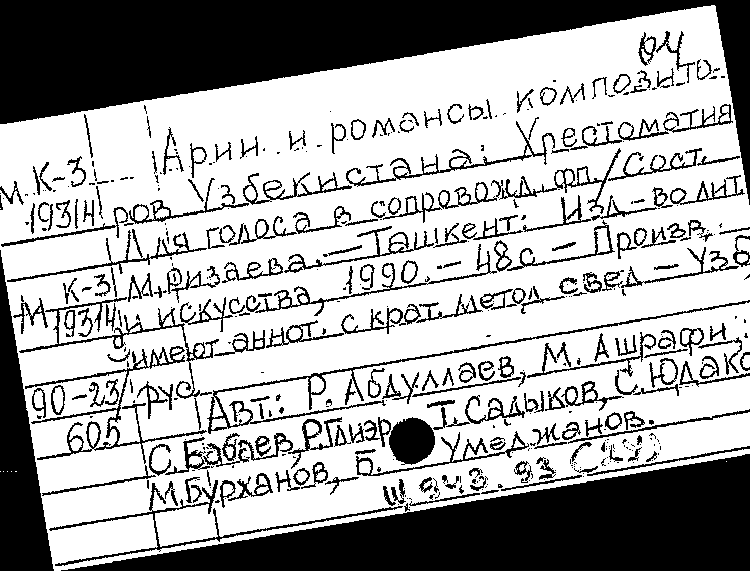 04
Арии и романсы композито-
М К-3
19314 ров Узбекистана: Хрестоматия
Для голоса в сопровожд. фп. / Сост.
М.Ризаева. — Ташкент: Изд-во лит.
М К-3
19314 и искусства, 1990. — 48 с — Произв.
имеют аннот. с крат. метод свед — Узб
90-23/ рус.
605 Авт.: Р. Абдуллаев, М. Ашрафи,
С. Бабаев, Р.Глиэр Т.Садыков, С. Юдако
М.Бурханов, Б. Умеджанов.
Щ 943.93